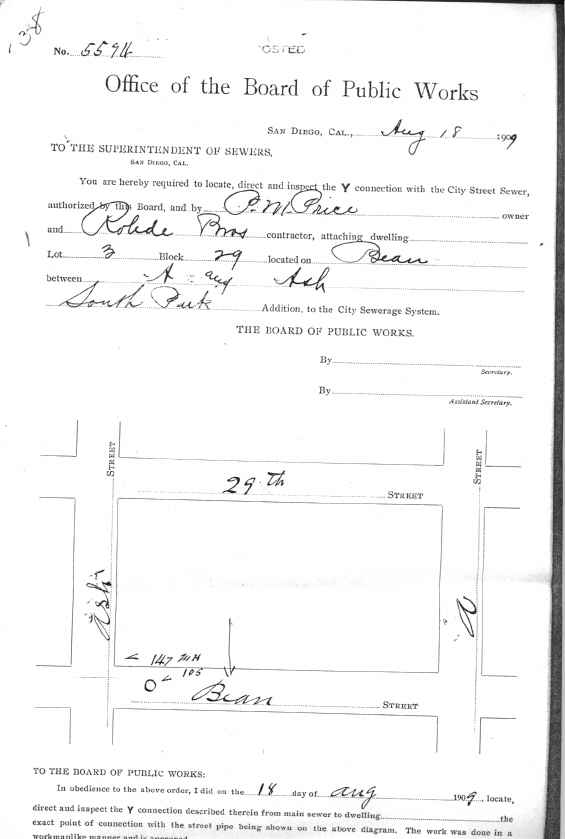 138
No. 5594 OSTED
Office of the Board of Public Works
SAN DIEGO, CAL., Aug 18 1909
TO THE SUPERINTENDENT OF SEWERS,
SAN DIEGO, CAL.
You are hereby required to locate, direct and inspect the Y connection with the City Street Sewer,
authorized by this Board, and by P. M. Price owner
and Rohde Bros contractor, attaching dwelling
Lot 3 Block 29 located on Bean
between A and Ash
South Park Addition, to the City Sewerage System.
THE BOARD OF PUBLIC WORKS.
By
Secretary.
By
Assistant Secretary.
STREET
STREET
29th STREET
Ash
A
147 MH
105
Bean STREET
TO THE BOARD OF PUBLIC WORKS:
In obedience to the above order, I did on the 18 day of Aug 1909, locate,
direct and inspect the Y connection described therein from main sewer to dwelling the
exact point of connection with the street pipe being shown on the above diagram. The work was done in a
workmanlike manner and is approved